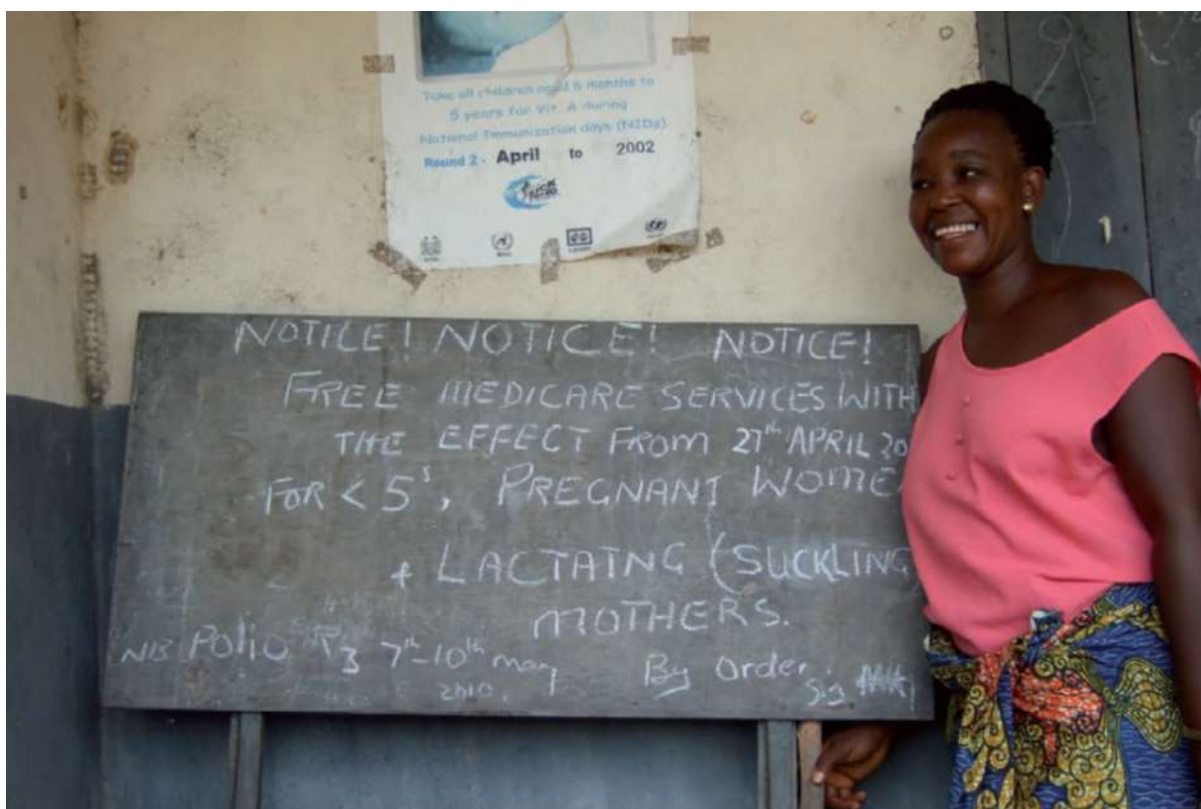 Take all children aged 6 months to
5 years for Vit. A during
National Immunization days (NIDs)
Round 2 - April to 2002
NOTICE! NOTICE! NOTICE!
FREE MEDICARE SERVICES WITH
THE EFFECT FROM 27th APRIL 20
FOR < 5s, PREGNANT WOME
+ LACTATNG (SUCKLING)
MOTHERS.
NB Polio R3 7th-10th may
2010.
By Order.
Sig